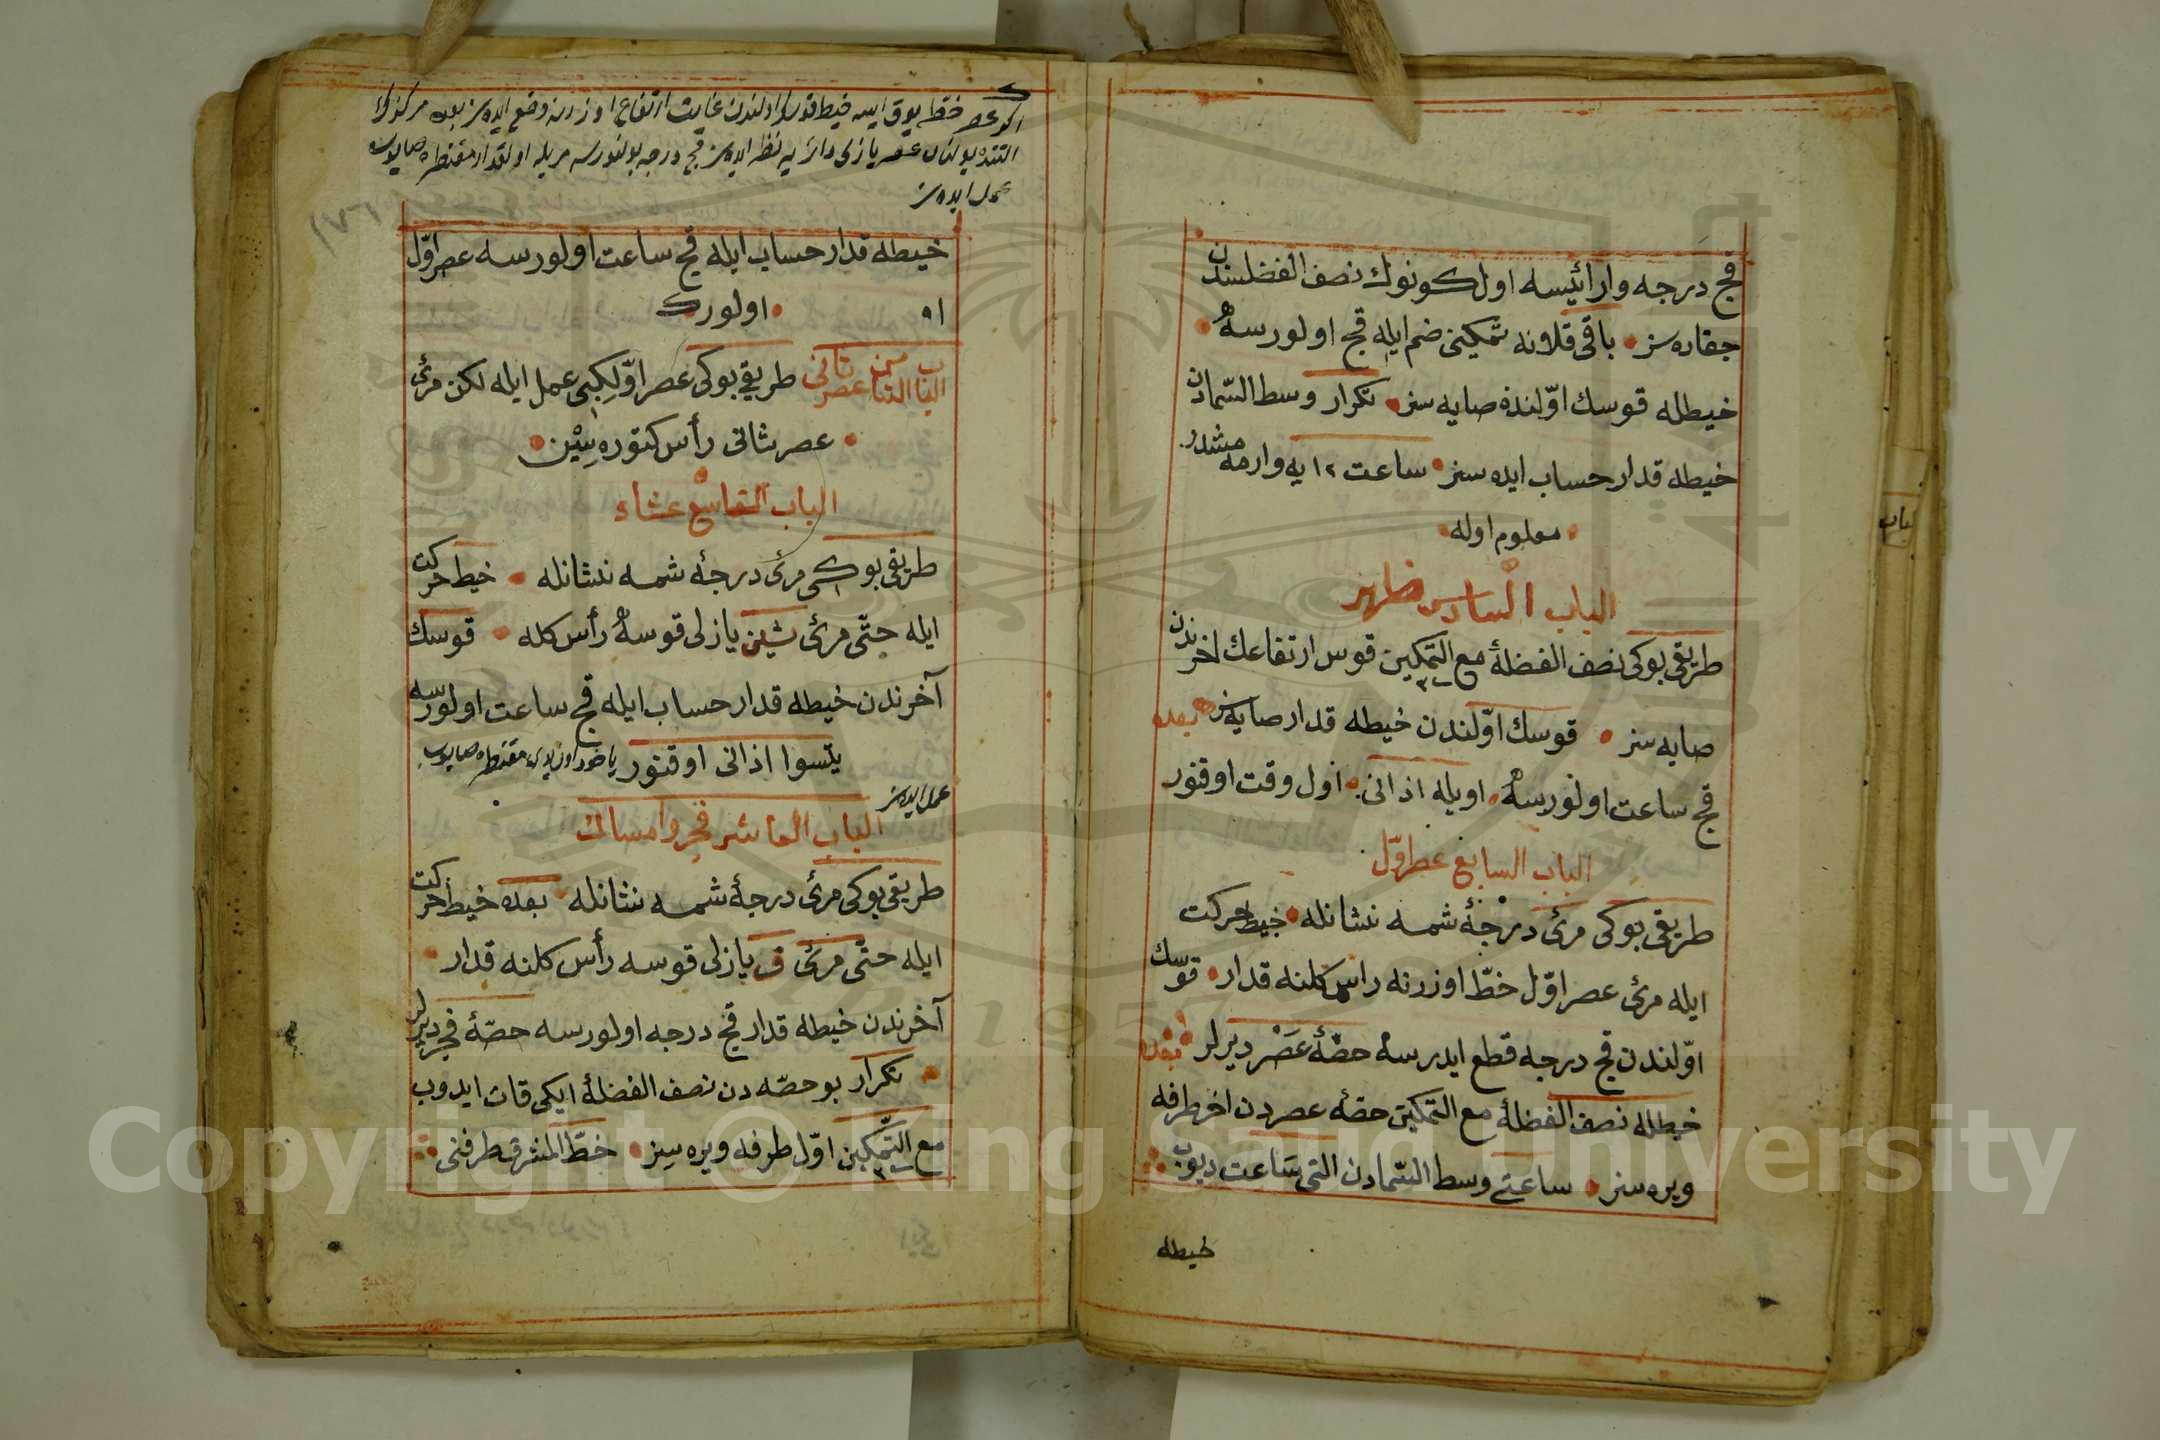 قچ درجه وارائيسه اول كونوك نصف الفضلسندن
جقاره سز باقی قلانه تمكينی ضم ايله قچ اولورسه
خيطله قوسك اوّلنده صايه سز تكرار وسط السّمادن
خيطه قدار حساب ايده سز ساعت ١٢ يه وارمه مشدر
معلوم اوله
الباب السادس ظهر
طريقی بوكی نصف الفضلهٔ مع التمكين قوس ارتفاعك اخرندن
صايه سز قوسك اوّلندن خيطه قدار صايه سز بعده
قچ ساعت اولورسه اويله اذانی اول وقت اوقنور
الباب السابع عصر اوّل
طريقی بوكی مرئ درجهٔ شمسه نشانله خيط حركت
ايله مرئ عصر اوّل خطّ اوزرنه راس كلنه قدار قوسك
اوّلندن قچ درجه قطع ايدرسه حصّهٔ عَصْر ديرلر بعده
خيطله نصف الفضلهٔ مع التمكين حصّهٔ عصردن اخر طرفه
ويره سز ساعتے وسط السّمادن التی ساعت ديوب
خيطه
اكر عصر خط يوق ايسه خيط قوس اولندن غايت ارتفاع اوزرنه وضع ايده سز بعده مركزك
التنده بولنان عصر يازلی دائره يه نظر ايده سز قچ درجه بولنورسه مريله اولقدار مقنطره صايوب
عمل ايده سز
١٧٦
خيطه قدار حساب ايله قچ ساعت اولورسه عصر اوّل
اولور
الباب الثامن عصر ثانی طريقی بوكی عصر اوّل كبی عمل ايله لكن مرئ
عصر ثانی رأس كتوره سِيْن
الباب التاسع عشاء
طريقی بوكی مرئ درجهٔ شمسه نشانله خيط حركت
ايله حتّی مرئ شين يازلی قوسه رأس كله قوسك
آخرندن خيطه قدار حساب ايله قچ ساعت اولورسه
يتسوا اذانی اوقنور ياخود اون يدی مقنطره صايوب
عمل ايده سز
الباب العاشر فجر وامساك
طريقی بوكی مرئ درجهٔ شمسه نشانله بعده خيط حركت
ايله حتّی مرئ ف يازلی قوسه رأس كلنه قدار
آخرندن خيطه قدار قچ درجه اولورسه حصّهٔ فجر ديرلر
تكرار بو حصّه دن نصف الفضلهٔ ايكی قات ايدوب
مع التّمكين اوّل طرفه ويره سِز خطّ المشرق طرفنی
Copyright © King Saud University
1957